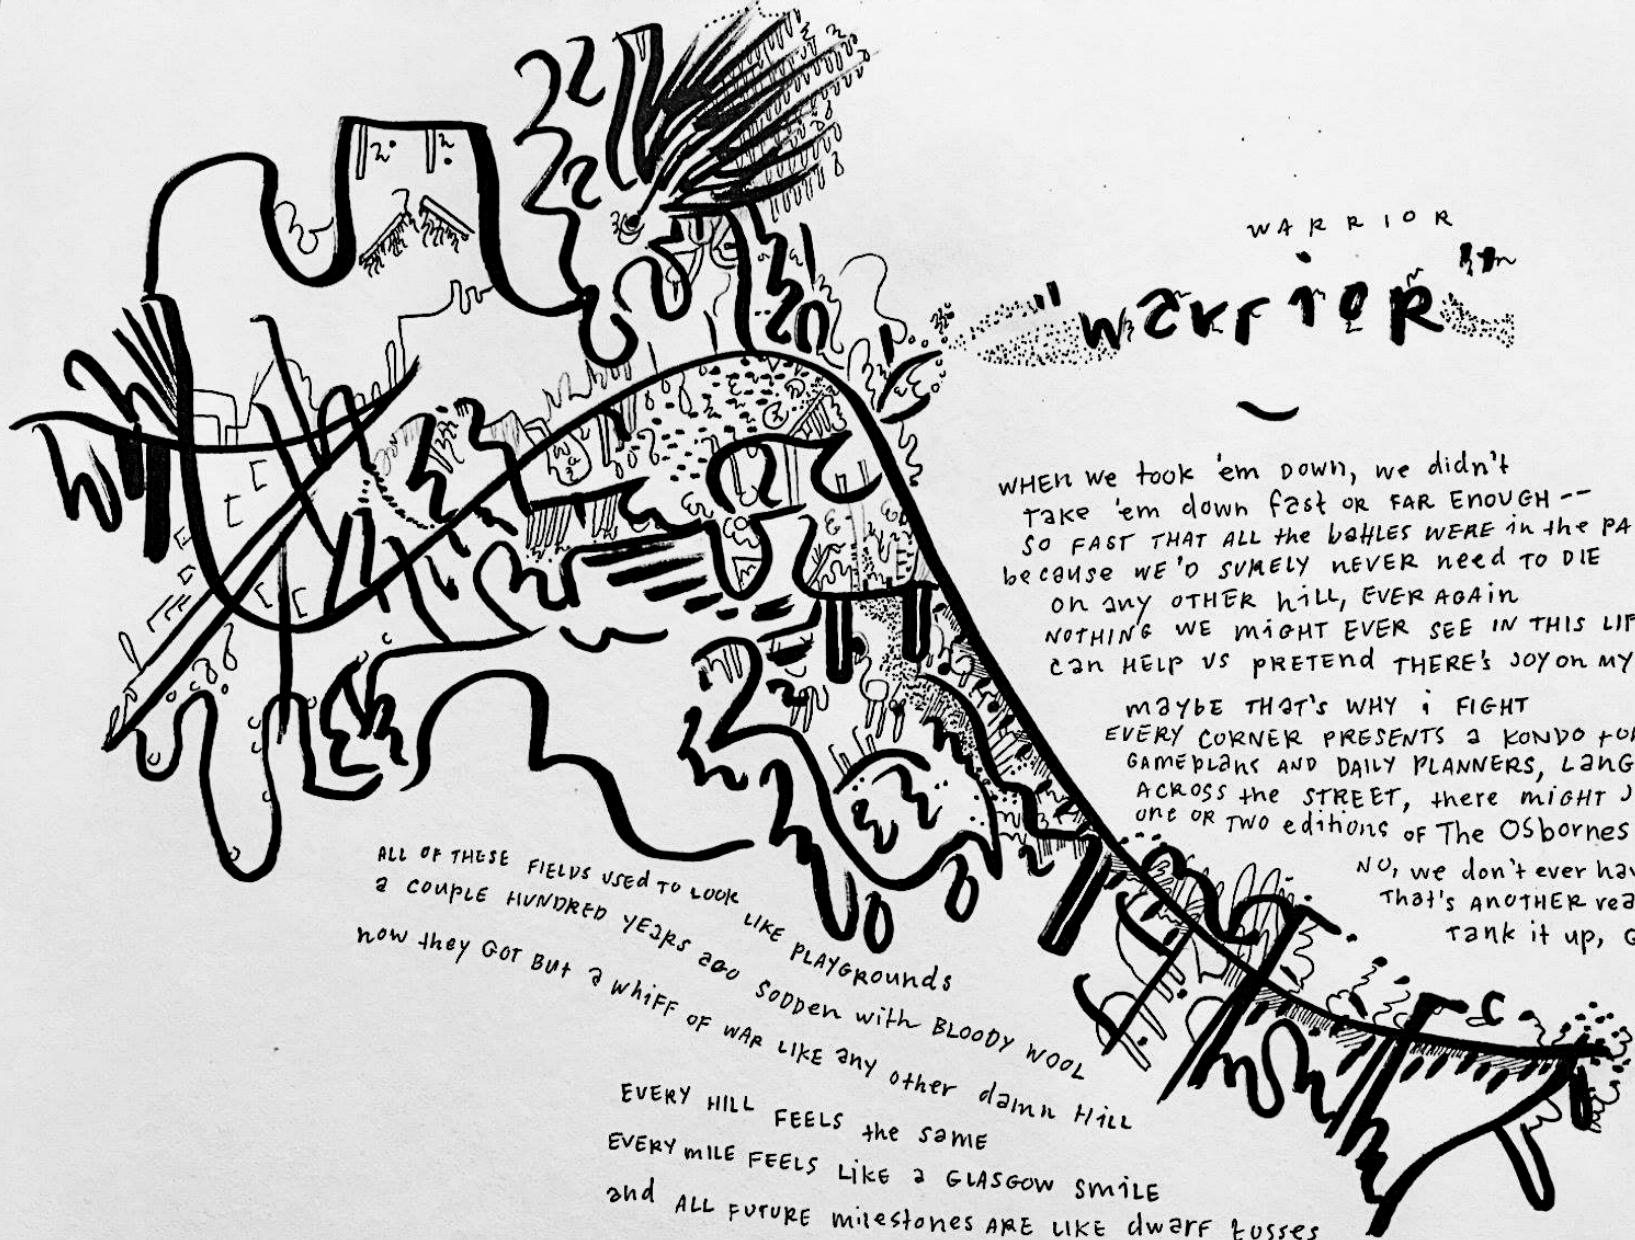 WARRIOR
"warrior"
WHEN we took 'em DOWN, we didn't
TAKE 'em down fast OR FAR ENOUGH --
SO FAST THAT ALL the battles WERE in the PA
because WE'D SURELY NEVER need TO DIE
on any OTHER hill, EVER AGAIN
NOTHING WE MiGHT EVER SEE IN THIS LIF
can HELP US PRETEND THERE'S JOY on MY
maybe THaT'S WHY i FIGHT
EVERY CORNER PRESENTS a KONDO
GAMEplans AND DAILY PLANNERS, LanG
ACROSS the STREET, there miGHT J
one OR TWO editions OF The OSbornes
NO, we don't ever hav
That's ANOTHER rea
Tank it up, G
ALL OF THESE FIELDS USED TO LOOK LIKE PLAYGROUNDS
a COUPLE HUNDRED YEaRS aGO SODDen with BLOODY WOOL
now they GOT BUt a WhiFF OF WAR LIKE any other damn HiLL
EVERY HILL FEELS the same
EVERY miLE FEELS LiKE a GLASGOW SmiLE
and ALL FUTURE milestones ARE LIKE dwarf tosses